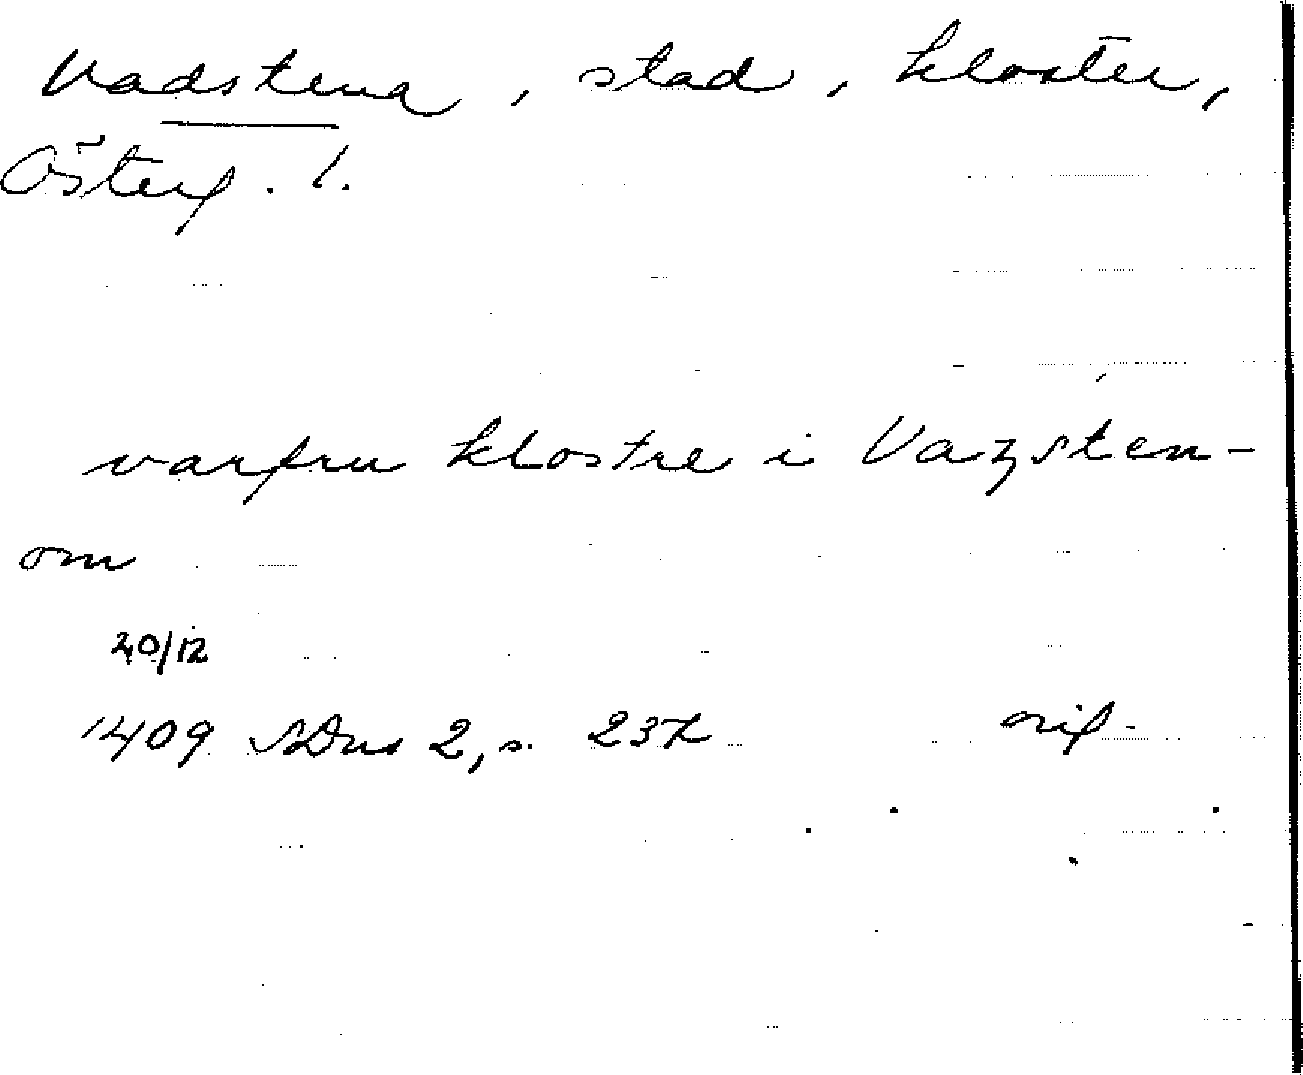 Vadstena, stad, kloster,
Österg. l.
varfru klostre i Vazsten-
om
20/12
1409 SDns 2, s. 237 orig.